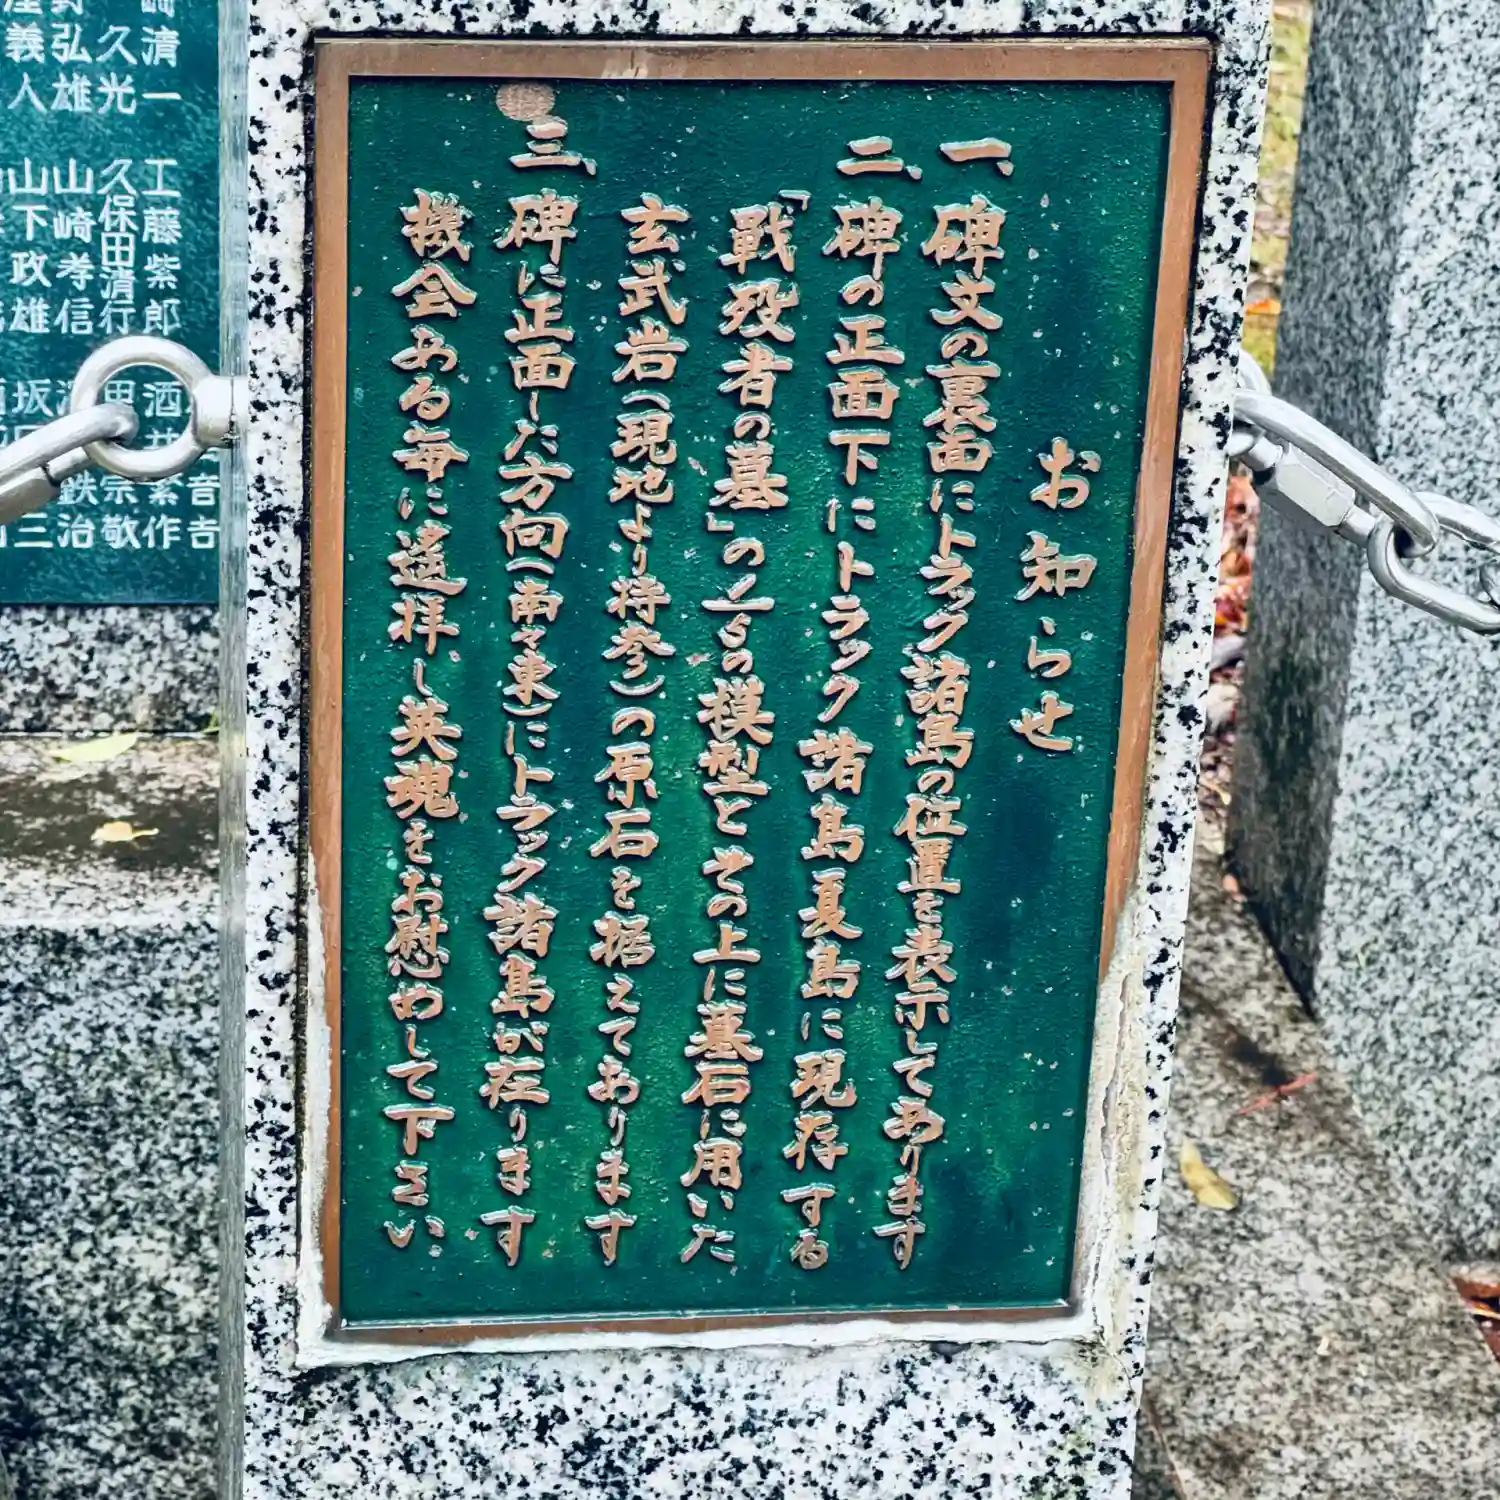 お知らせ
一、碑文の裏面にトラック諸島の位置を表示してあります
二、碑の正面下にトラック諸島夏島に現存する
「戦歿者の墓」の1/5の模型とその上に墓石に用いた
玄武岩(現地より持参)の原石を据えてあります
三、碑に正面した方向(南々東)にトラック諸島が在ります
機会ある毎に遙拝し英魂をお慰めして下さい
清一
久光
弘雄
義人
工藤紫郎
久保田清行
山崎孝信
山下政雄